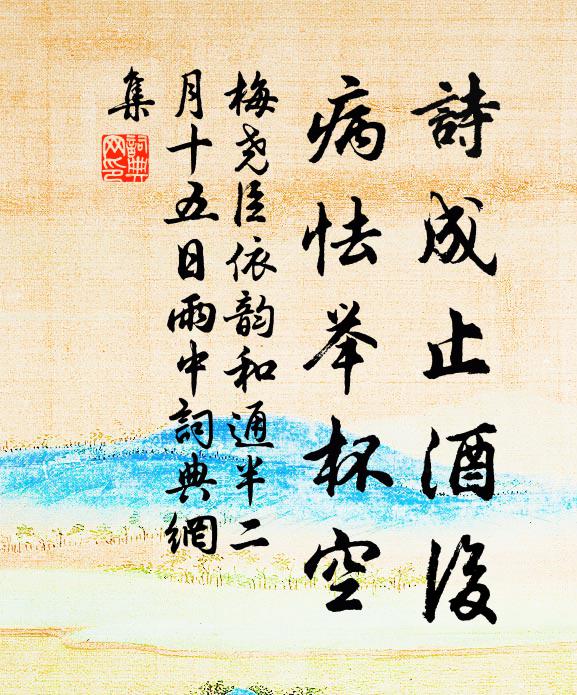 詩成止酒後
病怯举杯空
梅尧臣依韵和通半二
月十五日雨中詞典網
集
詞典
网印